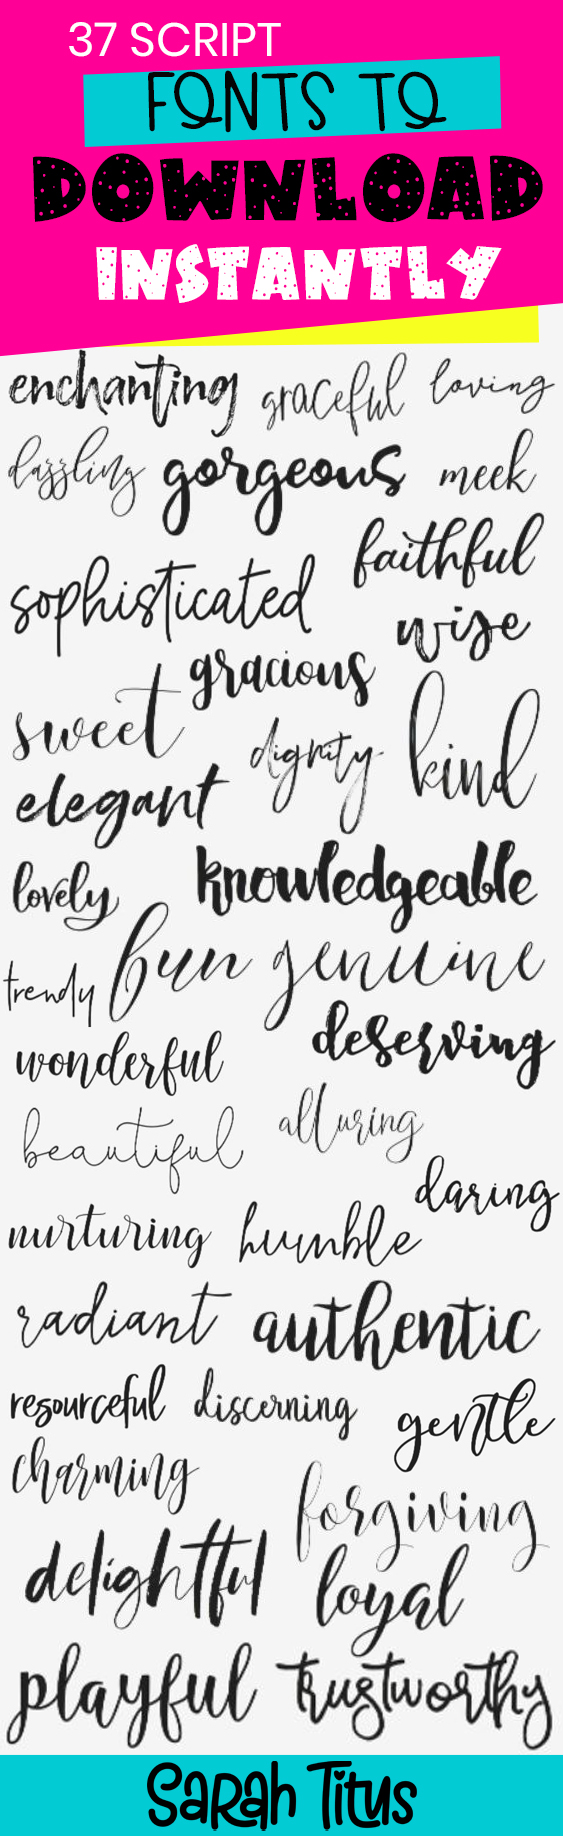 37 SCRIPT
FONTS TO
DOWNLOAD
INSTANTLY
enchanting graceful loving
dazzling gorgeous meek
faithful
sophisticated
wise
gracious
sweet
dignity kind
elegant
lovely knowledgeable
trendy fun genuine
deserving
wonderful
alluring
beautiful
daring
nurturing humble
radiant authentic
resourceful discerning gentle
charming
forgiving
delightful loyal
playful trustworthy
Sarah Titus